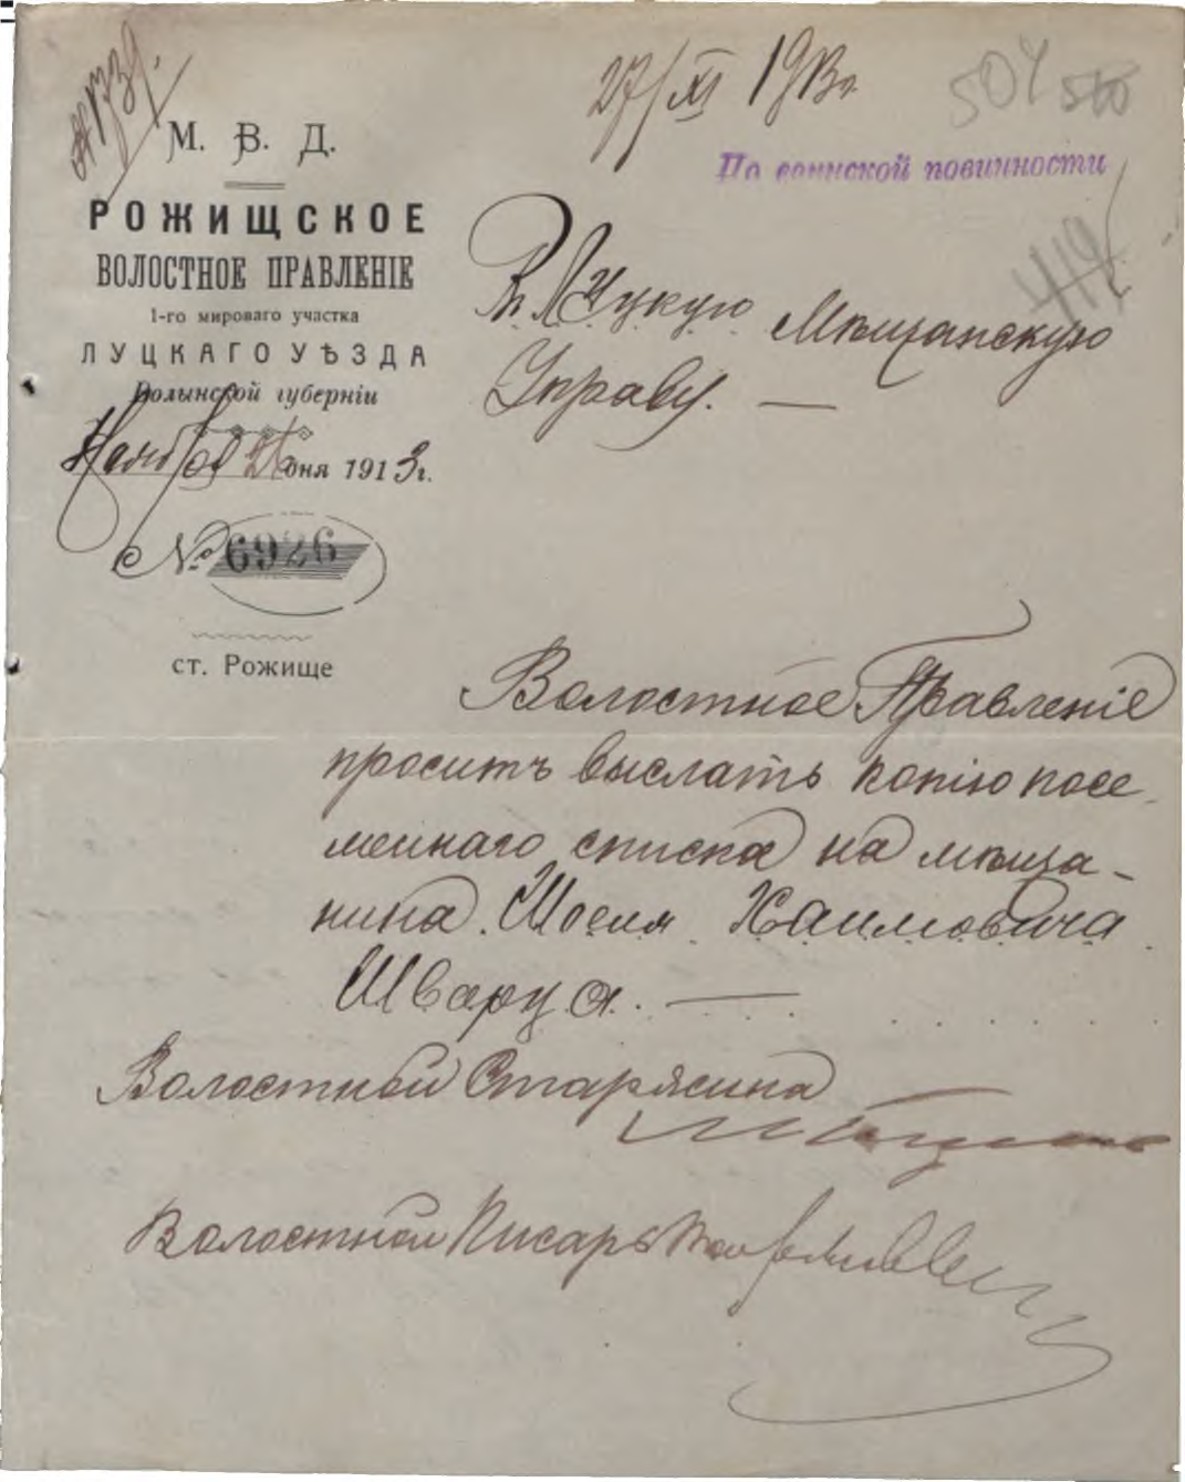 27/XI 1913 г.
504
По воинской повинности
419
М. В. Д.
РОЖИЩСКОЕ
ВОЛОСТНОЕ ПРАВЛЕНІЕ
1-го мироваго участка
ЛУЦКАГО УѢЗДА
Волынской губерніи
Ноября дня 1913 г.
№ 6926
ст. Рожище
Въ Луцкую Мѣщанскую
Управу. —
Волостное Правленіе
проситъ выслать копію посе-
мейнаго списка на мѣща-
нина Шоеля Хаимовича
Шварца. —
Волостной Старшина
Волостной Писарь